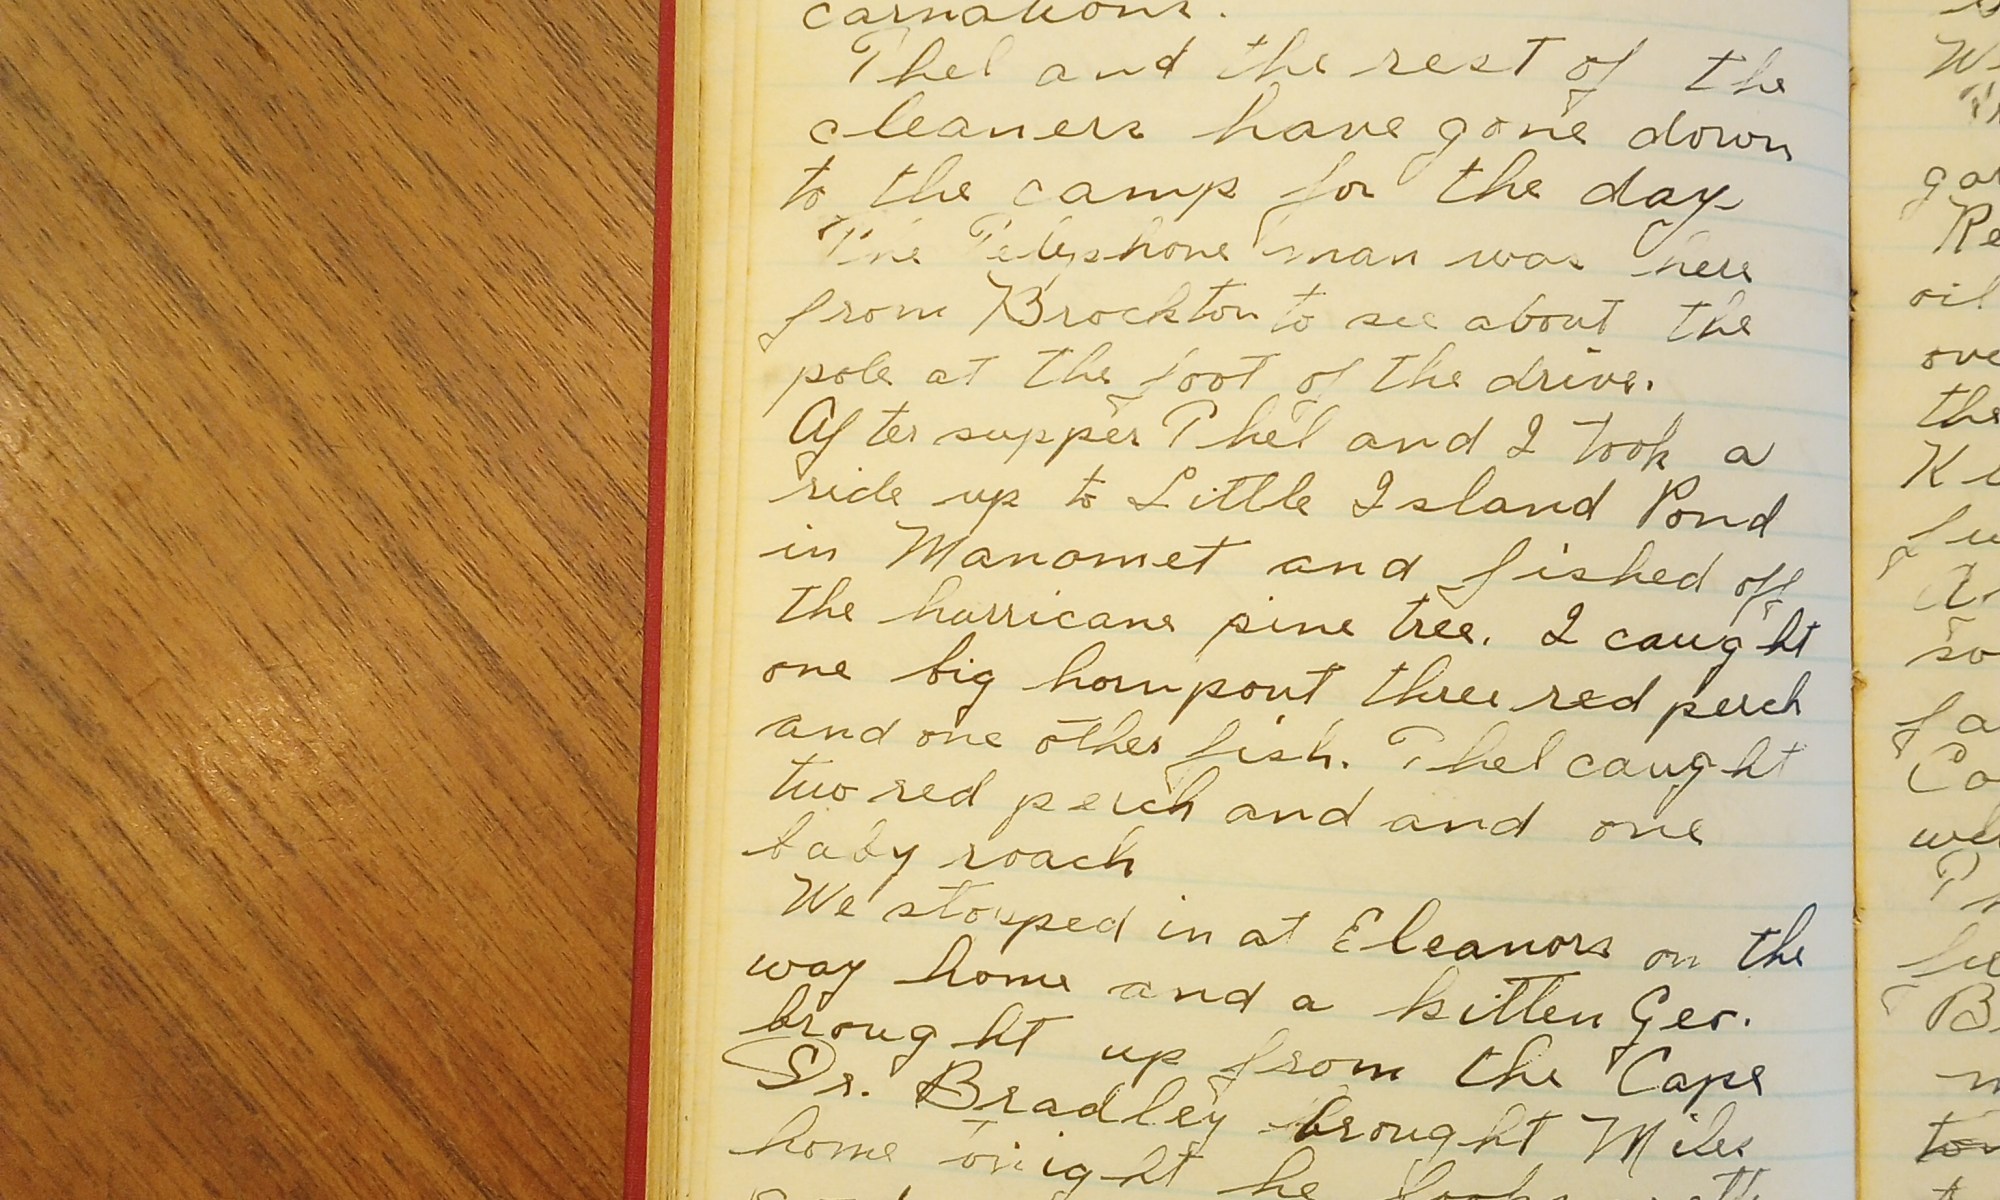 carnations.
Phel and the rest of the
cleaners have gone down
to the camp for the day
The Telephone man was here
from Brockton to see about the
pole at the foot of the drive.
After supper Phel and I took a
ride up to Little Island Pond
in Manomet and fished off
the hurricane pine tree. I caught
one big hornpout three red perch
and one other fish. Phel caught
two red perch and and one
baby roach
We stopped in at Eleanors on the
way home and a kitten Geo.
brought up from the Cape
Dr. Bradley brought Miles
home tonight he looks
W
gar
Re
oil
ove
the
K
fu
A
so
fa
Co
we
B